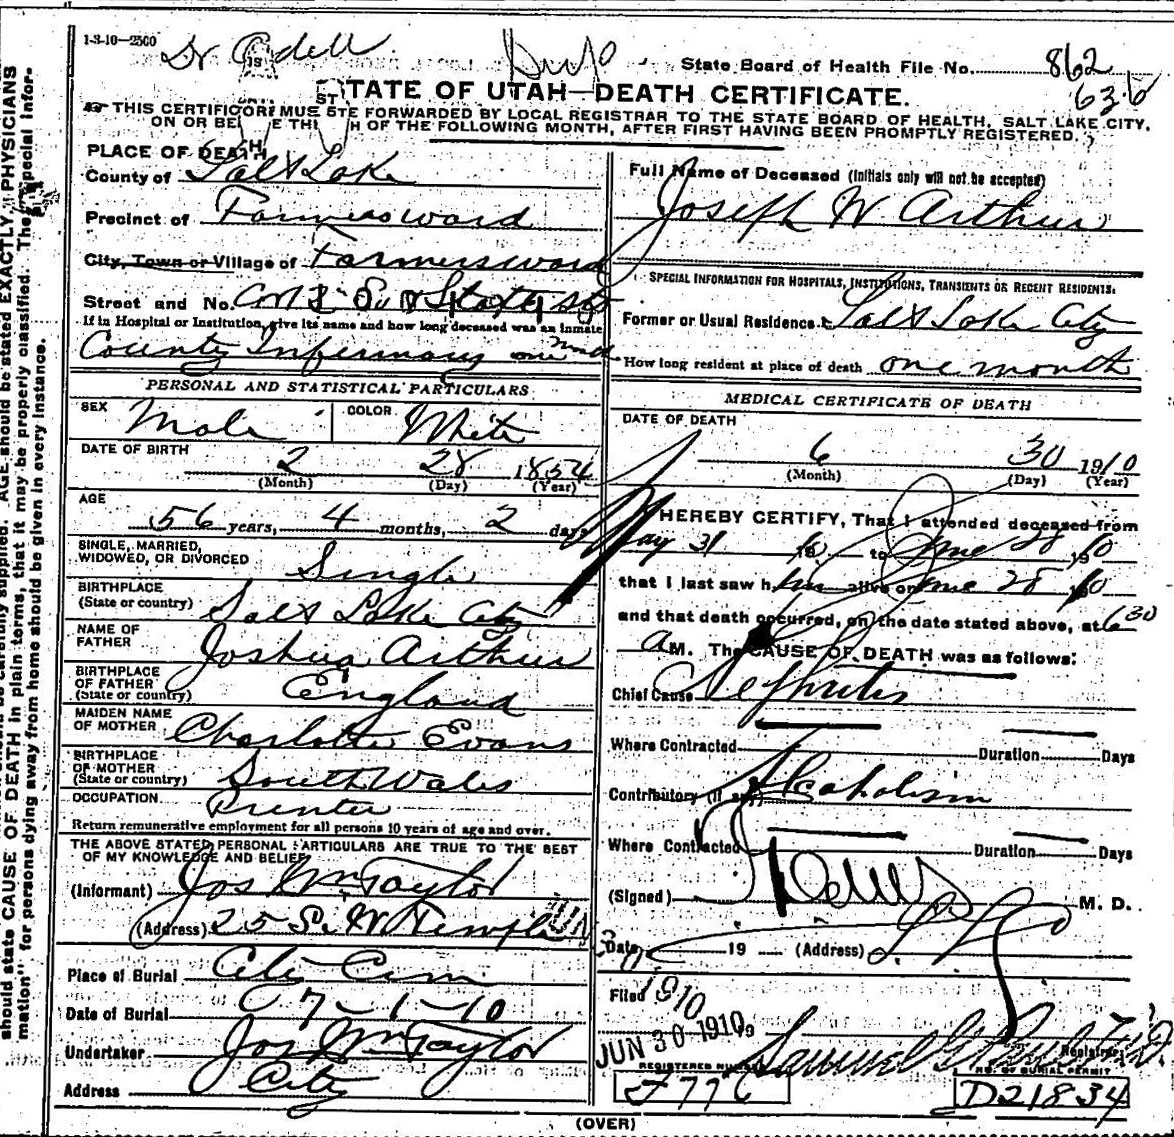 1-3-10-2500
Dr Odell
State Board of Health File No. 862
STATE OF UTAH—DEATH CERTIFICATE.
THIS CERTIFICATE MUST BE FORWARDED BY LOCAL REGISTRAR TO THE STATE BOARD OF HEALTH, SALT LAKE CITY,
ON OR BEFORE THE OF THE FOLLOWING MONTH, AFTER FIRST HAVING BEEN PROMPTLY REGISTERED.
PLACE OF DEATH
County of Salt Lake
Precinct of Farmersward
City, Town or Village of Farmersward
Street and No. State
If in Hospital or Institution, give its name and how long deceased was an inmate
County Infirmary one
PERSONAL AND STATISTICAL PARTICULARS
SEX Male COLOR White
DATE OF BIRTH
2 28 1854
(Month) (Day) (Year)
AGE
56 years, 4 months, 2 days
SINGLE, MARRIED,
WIDOWED, OR DIVORCED Single
BIRTHPLACE
(State or country) Salt Lake City
NAME OF
FATHER Joshua Arthur
BIRTHPLACE
OF FATHER
(State or country) England
MAIDEN NAME
OF MOTHER Charlotte Evans
BIRTHPLACE
OF MOTHER
(State or country) South Wales
OCCUPATION Printer
Return remunerative employment for all persons 10 years of age and over.
THE ABOVE STATED PERSONAL PARTICULARS ARE TRUE TO THE BEST
OF MY KNOWLEDGE AND BELIEF
(Informant) Jos Wm Taylor
(Address) 25 So. W Temple
Place of Burial City Cem
Date of Burial 7-1-10
Undertaker Jos Wm Taylor
Address City
Full Name of Deceased (Initials only will not be accepted)
Joseph W Arthur
SPECIAL INFORMATION FOR HOSPITALS, INSTITUTIONS, TRANSIENTS OR RECENT RESIDENTS.
Former or Usual Residence Salt Lake City
How long resident at place of death one month
MEDICAL CERTIFICATE OF DEATH
DATE OF DEATH
6 30 1910
(Month) (Day) (Year)
HEREBY CERTIFY, That I attended deceased from
May 31 10 to June 28 10
that I last saw him alive on June 28 10
and that death occurred, on the date stated above, at 6 30
a M. The CAUSE OF DEATH was as follows:
Chief Cause Nephritis
Where Contracted Duration Days
Contributory (if any) Alcoholism
Where Contracted Duration Days
(Signed) M. D.
Date 19 (Address)
Filed 1910
JUN 30 1910
Samuel G Registrar
REGISTERED NUMBER NO. OF BURIAL PERMIT
F776 D21834
(OVER)
should state CAUSE OF DEATH in plain terms, that it may be properly classified. The "Special Infor-
mation" for persons dying away from home should be given in every instance.